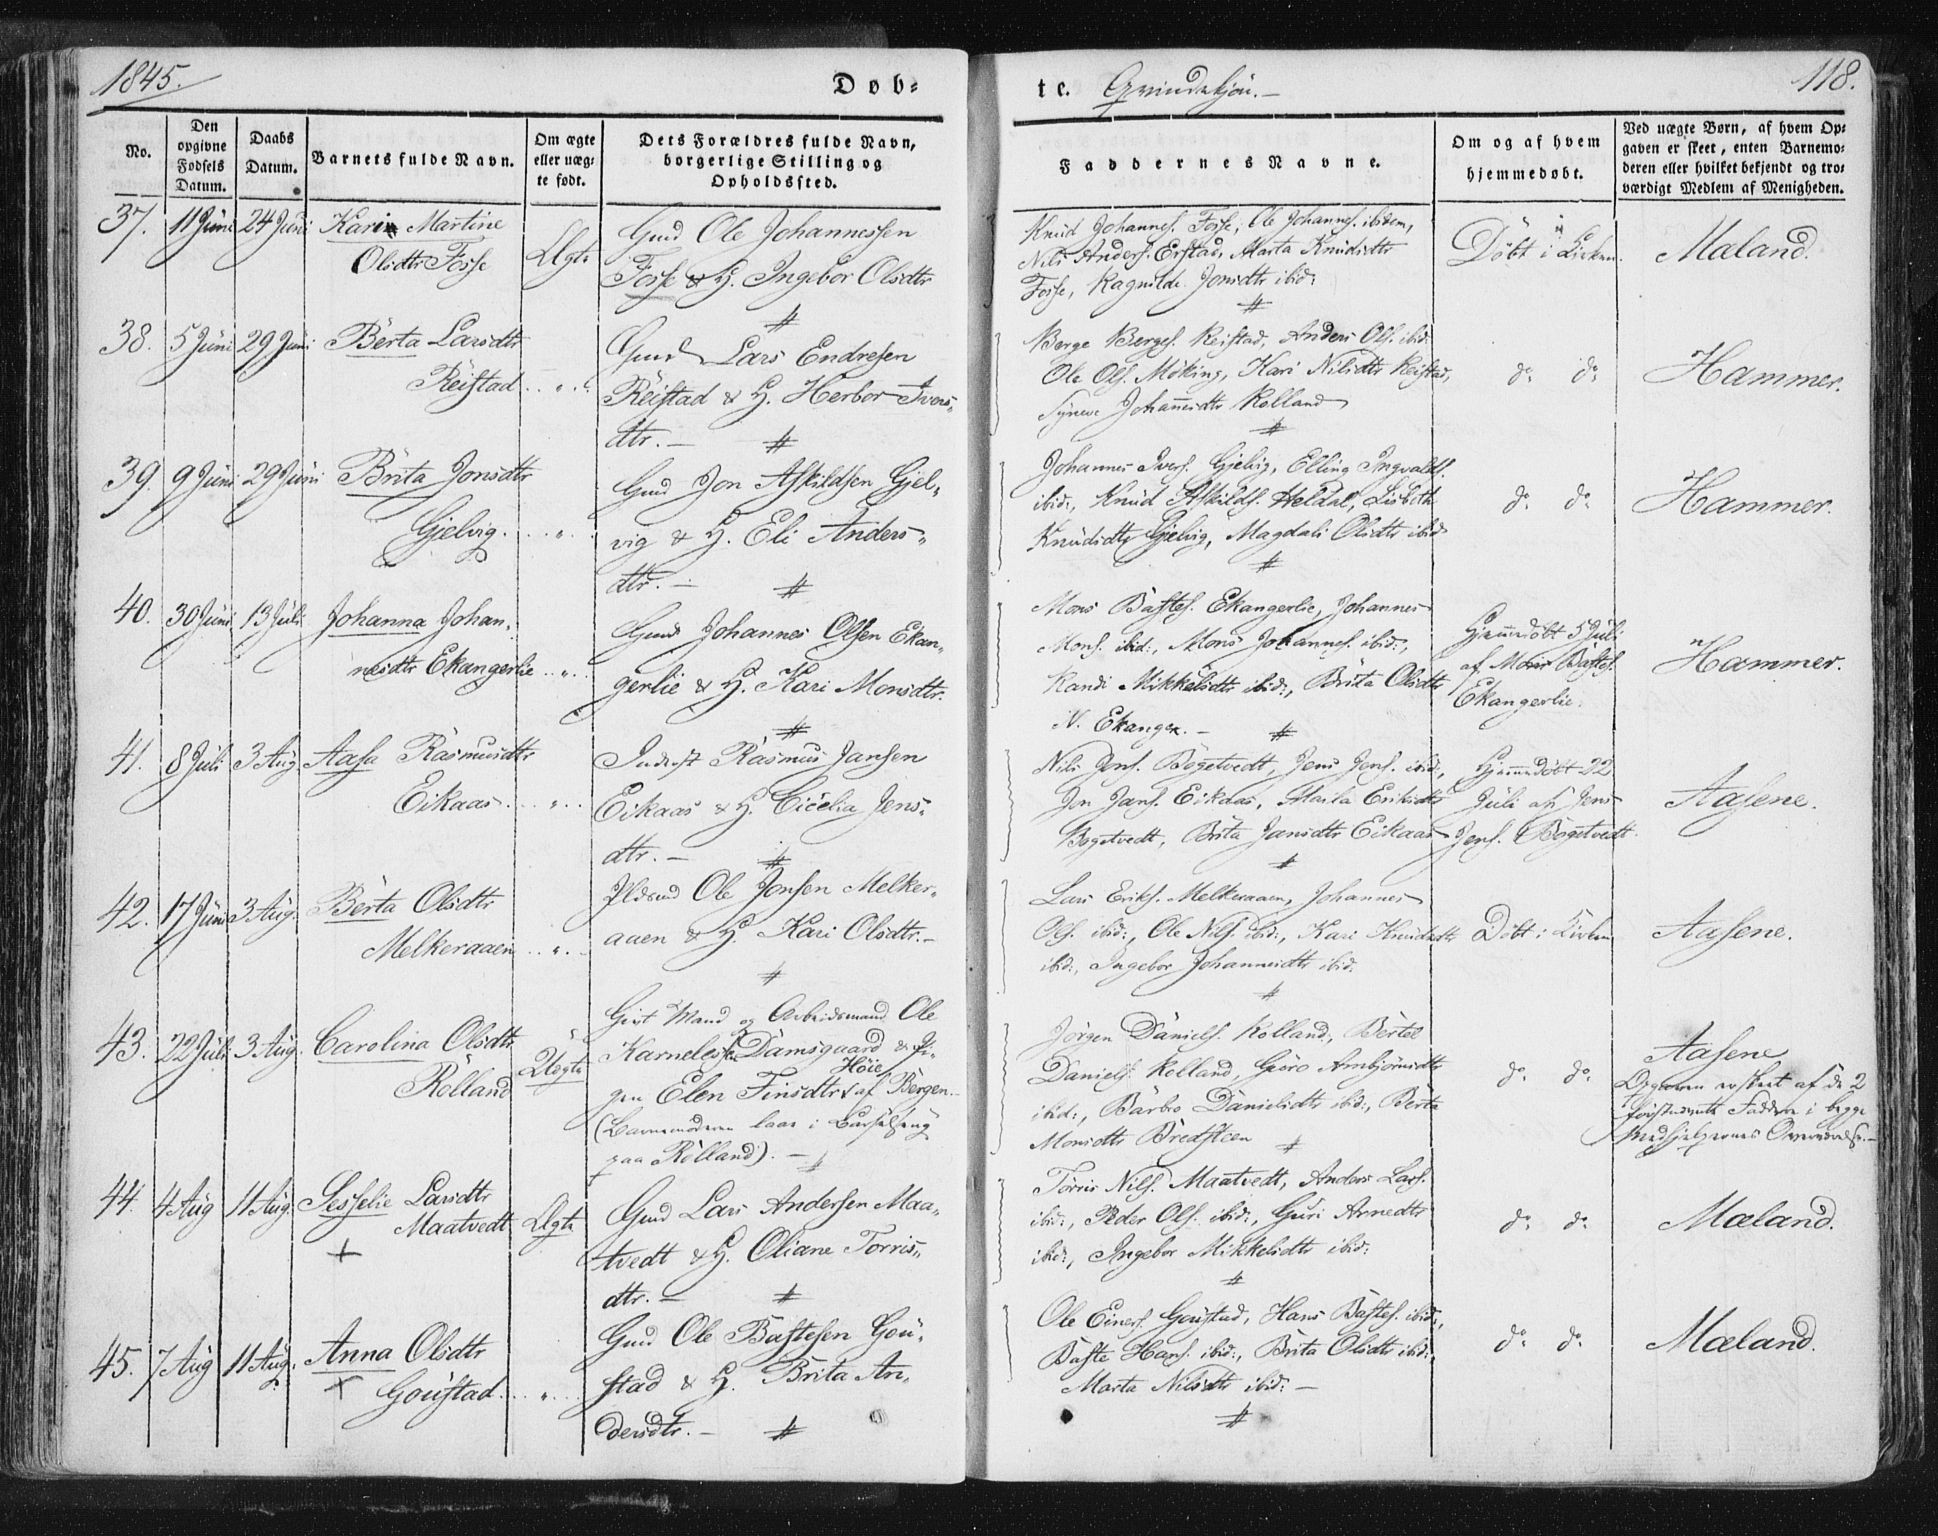 1845.
Døb-
te. Qvindekjön.-
118.
No.
Den opgivne Fødsels Datum.
Daabs Datum.
Barnets fulde Navn.
Om ægte eller uæg-
te født.
Dets Forældres fulde Navn,
borgerlige Stilling og
Opholdssted.
Faddernes Navne.
Om og af hvem
hjemmedøbt.
Ved uægte Børn, af hvem Op-
gaven er skeet, enten Barnemo-
deren eller hvilket bekjendt og tro-
værdigt Medlem af Menigheden.
37. 11 Juni 24 Juni Karin Martine
Olsdtr Fosse
Ægte
Gmd Ole Johannessen
Fosse & H. Ingebor Olsdtr
#
Knud Johannes. Fosse, Ole Johannes. ibidem,
Nils Anders. Erstad, Marta Knudsdtr
Fosse, Ragnilde Jonsdtr ibid:
#
Döbt i Kirken.
Mæland.
38. 5 Juni 29 Juni Berta Larsdtr
Reistad . . „ .
Gmd Lars Endresen
Reistad & H. Herbor Ivers-
dtr. - #
Berge Berges. Reistad, Anders Ols. ibid:
Ole Ols. Möking, Kari Nilsdtr Reistad,
Syneve Johannesdtr Rolland
#
do do
Hammer.
39. 9 Juni 29 Juni Brita Jonsdtr
Gjelvig. . . „ . .
Gmd Jon Askildsen Gjel-
vig & H. Eli Anders-
dtr. - #
Johannes Ivers. Gjelvig, Elling Ingvalds.
ibid:, Knud Askilds. Heldal, Lisbeth
Knudsdtr Gjelvig, Magdali Olsdtr ibid
#
do do
Hammer.
40. 30 Juni 13 Juli Johanna Johan-
nesdtr Ekangerlie . . „ . .
Gmd Johannes Olsen Ekan-
gerlie & H. Kari Monsdtr.
#
Mons Bastes. Ekangerlie, Johannes
Mons. ibid:, Mons Johannes. ibid:,
Randi Mikkelsdtr ibid:, Brita Olsdtr
N. Ekanger. - #
Hjemmedöbt 5 Juli
af Mons Bastes.
Ekangerlie.
Hammer.
41. 8 Juli 3 Aug. Aasa Rasmusdtr
Eikaas . . „ . .
Inderst Rasmus Jansen
Eikaas & H. Cicelia Jens-
dtr. - #
Nils Jens. Bogetvedt, Jens Jens. ibid:,
Jon Jans. Eikaas, Marta Eriksdtr
Bogetvedt, Brita Jansdtr Eikaas
#
Hjemmedöbt 22
Juli af Jens
Jens. Bogetvedt.
Aasene.
42. 17 Juni 3 Aug. Berta Olsdtr
Melkeraaen . . „ . .
Pldsmd Ole Jonsen Melker-
aaen & H. Kari Olsdtr. -
#
Lars Eriks. Melkeraaen, Johannes
Ols. ibid:, Ole Nils. ibid:, Kari Knudsdtr
ibid:, Ingebor Johannesdtr ibid.
#
Döbt i Kirken
Aasene.
43. 22 Juli 3 Aug. Carolina Olsdtr
Rolland
Uægte
Gift Mand og Arbeidsmand Ole
Karnelesen Damsgaard & Pi-
gen Elen Finsdtr Höie af Bergen.
(Barnemoderen laae i Barselseng
paa Rolland). -
#
Jörgen Daniels. Rolland, Bertel
Daniels. Rolland, Guro Ambjörnsdtr
ibid:, Barbro Danielsdtr ibid:, Berta
Monsdtr Bredsteen #
do do
Aasene.
Opgaven er skeet af de 2
förstnævnte Faddere i begge
Medhjelpernes Overværelse. -
44. 4 Aug 11 Aug. Sesselie Larsdtr
Maatvedt
+
Ægte
Gmd Lars Andersen Maa-
tvedt & H. Oliane Torris-
dtr. - #
Torris Nils. Maatvedt, Anders Lars.
ibid:, Peder Ols. ibid:, Guri Arnedtr
ibid:, Ingebor Mikkelsdtr ibid:
#
do do
Mæland.
45. 7 Aug 11 Aug. Anna Olsdtr
+ Goustad . . „ . .
Gmd Ole Bastesen Gou-
stad & H. Brita An-
dersdtr. - #
Ole Einers. Goustad, Hans Bastes. ibid:,
Baste Hans. ibid:, Brita Olsdtr ibid:,
Marta Nilsdtr ibid: -
#
do do
Mæland.